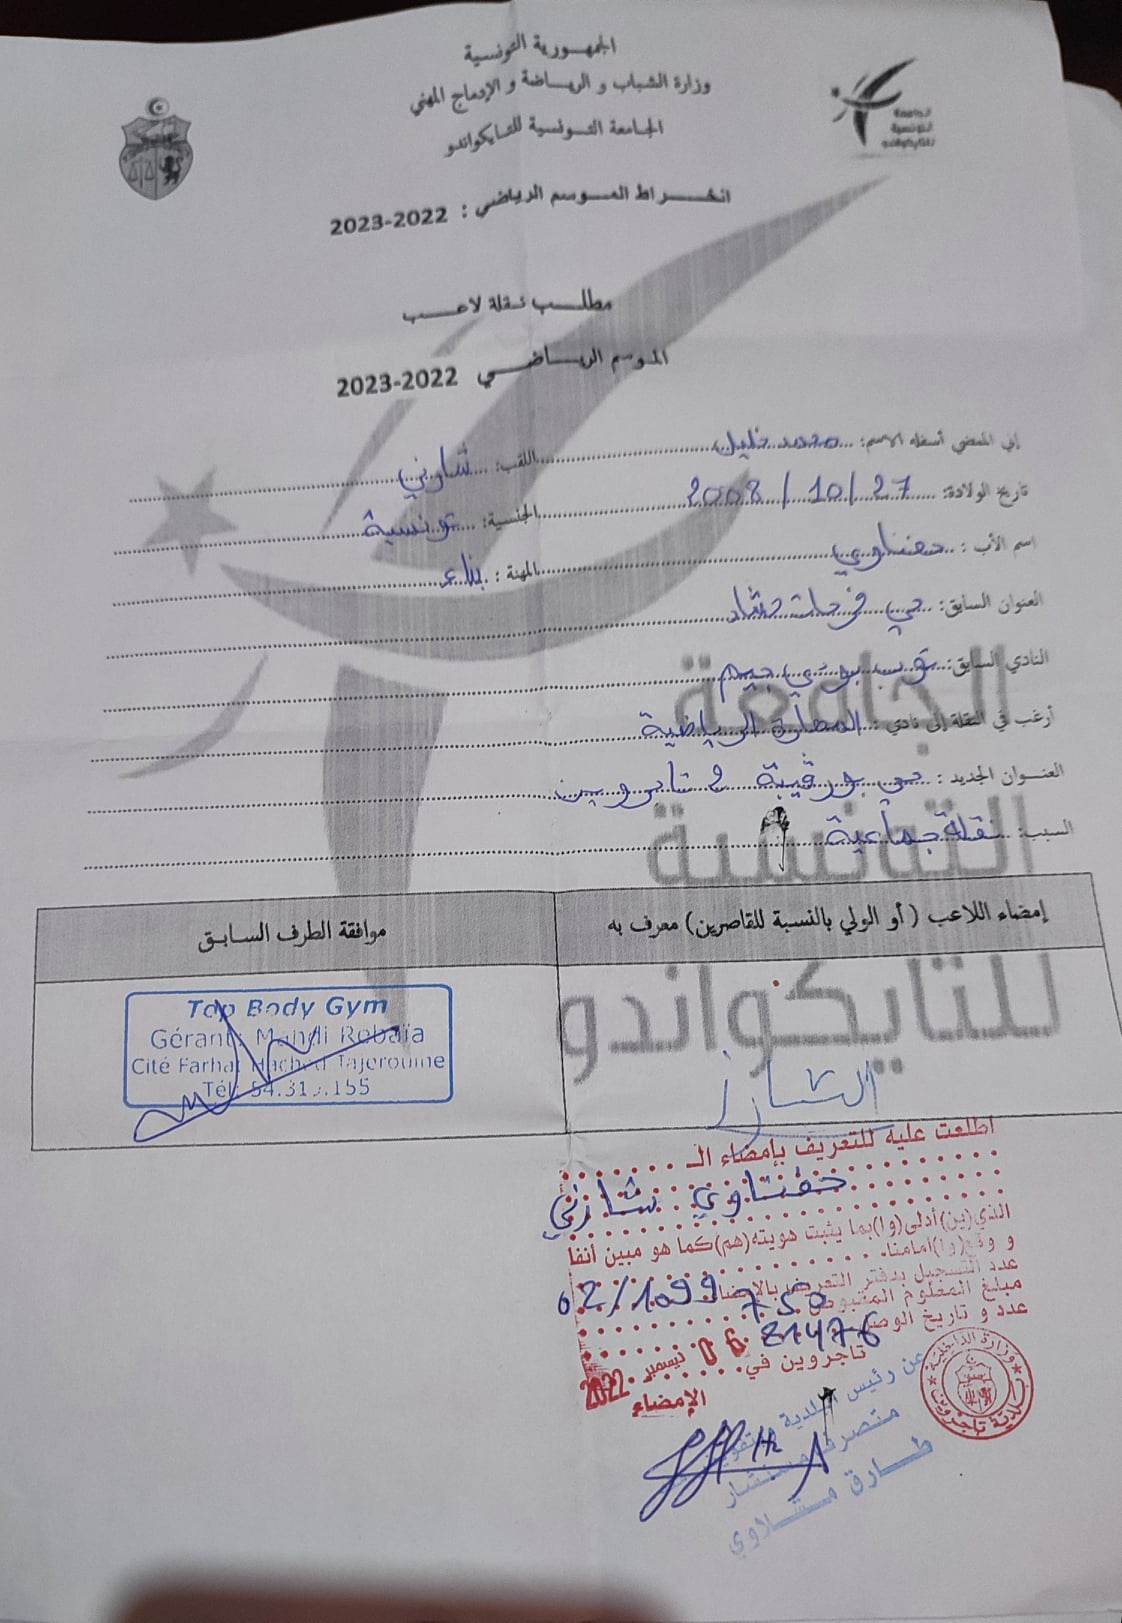 الجمهورية التونسية
وزارة الشباب و الرياضة و الإدماج المهني
الجامعة التونسية للتايكواندو
الجامعة
التونسية
للتايكواندو
انخراط الموسم الرياضي : 2022-2023
مطلب نقلة لاعب
الموسم الرياضي 2022-2023
إني الممضي أسفله الاسم: محمد خليل اللقب: شارني
تاريخ الولادة: 27 / 10 / 2008 الجنسية: تونسية
اسم الأب : حفناوي المهنة : بناء
العنوان السابق: حي فرحات حشاد
النادي السابق: توب بودي جيم
أرغب في النقلة إلى نادي : المهارة الرياضية
العنوان الجديد : حي بورقيبة 2 تاجروين
السبب: نقلة جماعية
الجامعة
التونسية
للتايكواندو
إمضاء اللاعب ( أو الولي بالنسبة للقاصرين) معرف به
موافقة الطرف السابق
Top Body Gym
Gérant: Mahdi Rebaïa
Cité Farhat Hached Tajerouine
Tél:
الشارني
اطلعت عليه للتعريف بإمضاء الـ
حفناوي شارني
الذي(ين)أدلى(وا)بما يثبت هويته(هم)كما هو مبين أنفا
و وقع(وا)أمامنا
عدد التسجيل بدفتر التعريف بالإمضاء 62/1099
مبلغ المعلوم المقبوض 750
عدد و تاريخ الوصل 81476
تاجروين في 06 ديسمبر 2022
الإمضاء
وزارة الداخلية
بلدية تاجروين
عن رئيس البلدية و بتفويض
متصرف مستشار
طارق مشلاوي